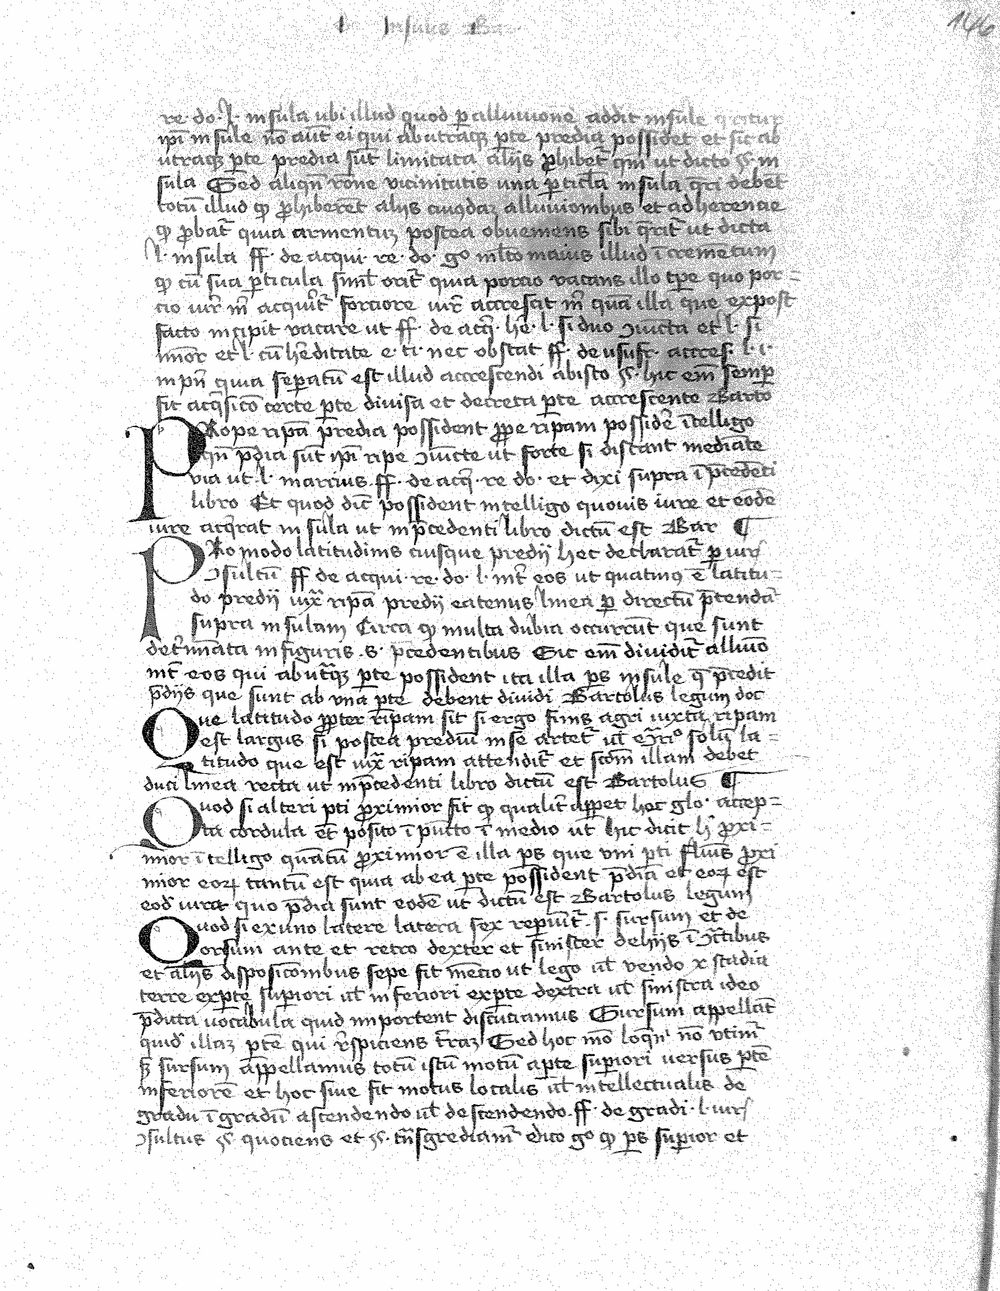 Insulis Bar
146
re. do. l. insula ubi illud quod p alluuionē addit insule q̄ritur
ipī insule nō aut ei qui ab utraqꝫ pte predia possidet et sic ab
utraqꝫ pte predia sūt limitata aliis ꝓhibet̄ qm̄ ut dicto §. in
sula Sed aliqn̄ rōne vicinitatis una pticla insula q̄ri debet
totū illud qd ꝓhiberet̄ aliis cuiꝯdaꝫ alluuionibus et adherencie
qd ꝓbat̄ quia armentuꝫ postea obueniens sibi q̄rit̄ ut dicta
l. insula ff. de acqui. re. do. gº mlto maius illud īcremētum
qd cū sua pticula siml orit̄ quia porcio vacans illo tpe quo por=
cio iur̄ m̄ acquirit̄ forciore iur̄ accrescit m̄ qua illa que expost
facto incipit vacare ut ff. de acq̄. he. l. si duo ꝯiuncta et l. si
minor et l. cū hereditate e. ti. nec obstat ff. de usufr. accres. l. i.
in pn̄ quia sepatū est illud accrescendi ab isto §. hic em̄ semp
fit acq̄sicō certe pte diuisa et decreta pte accrescente Barto
PRope ripā predia possident ꝓpe ripam possidē ītelligo
qn̄ pdia sūt ipī ripe ꝯiūcte ut forte si distant mediate
via ut l. marcius. ff. de acq̄. re do. et dixi supra ī pcedēti
libro Et quod dic̄ possident intelligo quouis iure et eodē
iure acq̄rat insula ut in pcedenti libro dictū est Bar ¶
PRo modo latitudinis cuiusque predij hec declarat̄ p iuris
ꝯsultū ff de acqui. re. do. l. int̄ eos ut quatinꝰ ē latitu=
do predij iuxͣ ripā predij eatenus linea p directū ptendat̄
supra insulam Circa qd multa dubia occurrūt que sunt
det̄minata in figuris .s. pcedentibus Sic em̄ diuidit̄ alluuio
int̄ eos qui ab utꝫqꝫ pte possident ita illa ps insule q̄ pcedit
pdiis que sunt ab vna pte debent diuidi Bartolus legum doc
Que latitudo ꝓpter ripam sit si ergo finis agri iuxta ripam
est largus si postea prediū in se artet̄ ul eꝯͣrio solū la=
titudo que est iuxͣ ripam attendit̄ et scdm illam debet
duci linea recta ut in pcedenti libro dictū est Bartolus ¶
Quod si alteri pti ꝓximior sit qd qualit̄ appet hoc glo. accep=
ta cordula et posito ī pūcto ī medio ut hic dicit hͦ ꝓxi=
mior ītelligo quātū ꝓximior ē illa ps que vni pti fluuiꝰ ꝓxi
mior eoꝝ tantū est quia ab ea pte possident pdia et eoꝝ est
eod iure quo pdia sunt eodē ut dictū est Bartolus legum
Quod si ex uno latere latera sex repiūt̄ .s. sursum et de
orsum ante et retro dexter et sinister de hiis ī ꝯtractibus
et aliis disposicōnibus sepe fit mencio ut lego ul vendo x stadia
terre ex pte supiori ul inferiori ex pte dextra ul sinistra ideo
pdicta vocabula quid importent discutiamus Sursum appellāt
quid illaꝫ ptē qui respiciens t̄raꝫ Sed hoc mō loqm̄ nō vtim̄
sꝫ sursum appellamus totū istū motū a pte supiori versus ptē
inferiorē et hoc siue fit motus localis ul intellectualis de
gradu ī gradū ascendendo ul descendendo. ff. de gradi. l. iuris
ꝯsultus §. quociens et §. tn̄sgrediamr̄ dico gº qd ps supior et